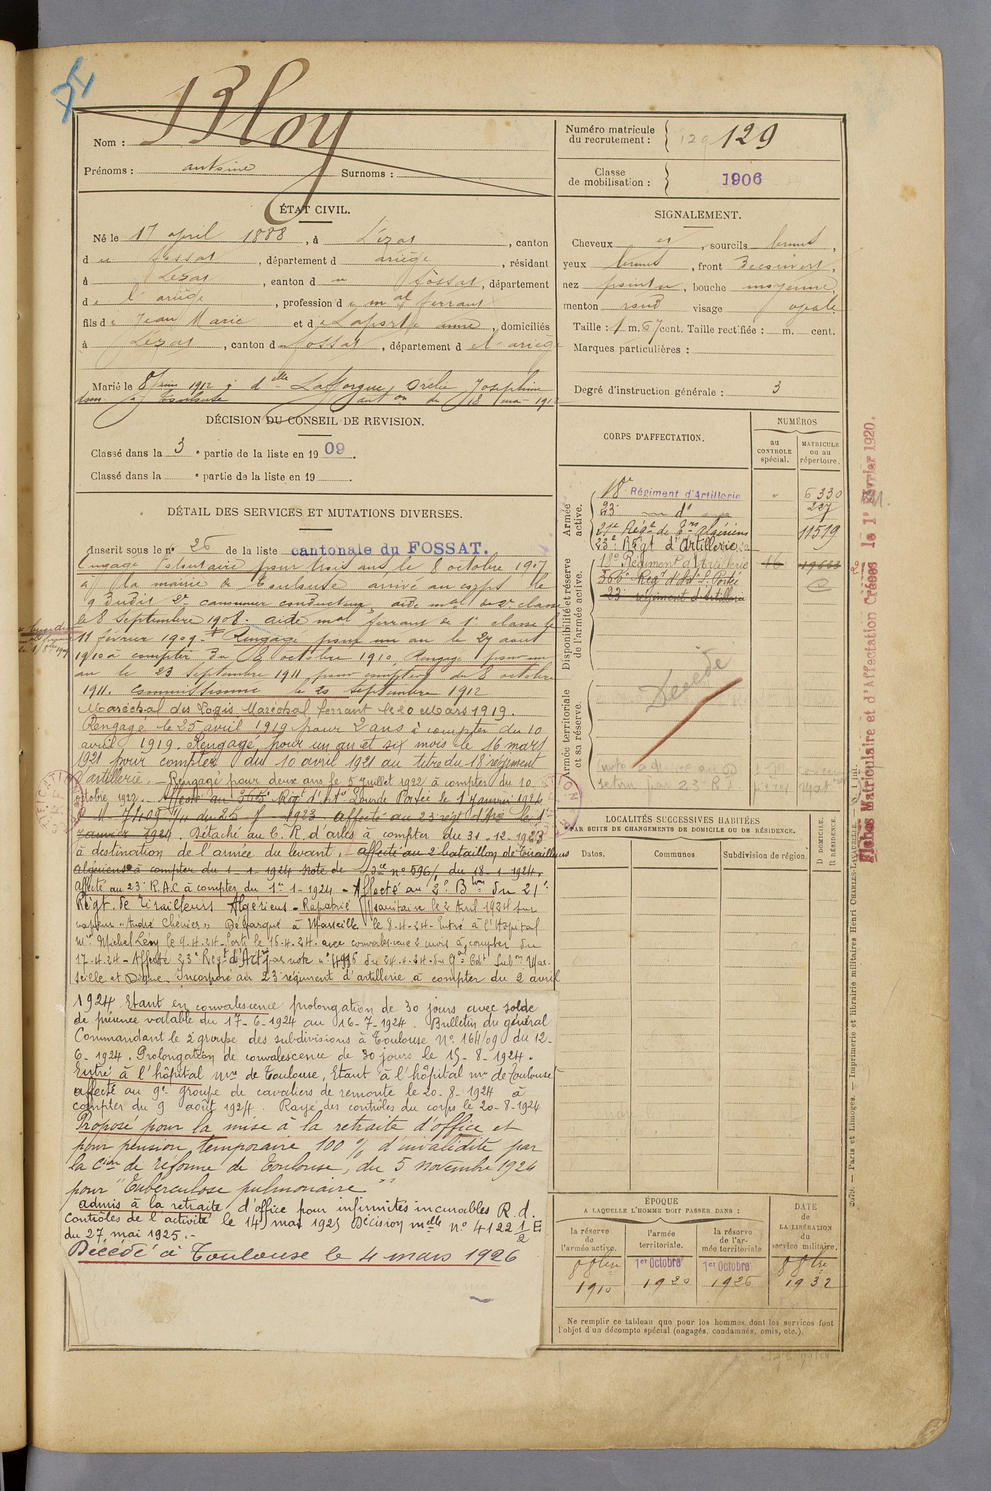 Bloy
Nom :
Prénoms : antoine Surnoms :
Numéro matricule
du recrutement : 129
Classe
de mobilisation : 1906
ÉTAT CIVIL.
Né le 17 april 1888, à Lézat, canton
du Fossat, département d ariège, résidant
à Lezat, canton d u Fossat, département
de l'ariège, profession de mal ferrant
fils de Jean Marie et de Laporte anne, domiciliés
à Lézat, canton d u Fossat, département d e l'ariège
Marié le 8 juin 1912 à dlle Lafforgue, Orelie Josephine
SIGNALEMENT.
Cheveux, sourcils bruns,
yeux bruns, front Découvert,
nez pointu, bouche moyenne,
menton rond visage ovale
Taille : 1 m. 67 cent. Taille rectifiée : m. cent.
Marques particulières :
Degré d'instruction générale : 3
DÉCISION DU CONSEIL DE REVISION.
Classé dans la 3 e partie de la liste en 19 09
Classé dans la e partie de la liste en 19
DÉTAIL DES SERVICES ET MUTATIONS DIVERSES.
Inscrit sous le no 26 de la liste cantonale du FOSSAT.
Engagé Volontaire pour trois ans le 8 octobre 1907
à la mairie de Toulouse arrivé au corps le
9 Dudit 2e canonnier conducteur aide mal de 2e classe
le 8 Septembre 1908. aide mal ferrant de 1e classe le
11 février 1909. Rengagé pour un an le 27 aout
1910 à compter du 8 octobre 1910. Rengagé pour un
an le 23 Septembre 1911 pour compter du 8 octobre
1911. commissionné le 20 septembre 1912
Maréchal des Logis Maréchal ferrant le 20 Mars 1919.
Rengagé le 25 avril 1919 pour 2 ans à compter du 10
avril 1919. Rengagé pour un an et six mois le 16 mars
1921 pour compter du 10 avril 1921 au titre du 18 régiment
d'artillerie. Rengagé pour deux ans le 5 juillet 1922 à compter du 10
octobre 1922. Affecté au 366e Régt d'Art Lourde Portée le 1 janvier 1924
1923 affecté au 23e régt d'Art le 1er
janvier 1924. Détaché au C. R. d'arles à compter du 31-12-1923
à destination de l'armée du levant, affecté au 2 bataillon de tirailleurs
algériens à compter du 1-1-1924 Note de Sce no 596/1 du 18-1-1924.
affecté au 23e R.A.C à compter du 1er 1-1924 - Affecté au 2e Bon du 21e
Régt de Tirailleurs Algériens - Rapatrié Sanitaire le 2 avril 1924 sur
vapeur "André Chénier" Débarqué à Marseille le 8.4.24. Entré à l'Hopital
Mre Michel Lévy le 9.4.24. Sorti le 16.4.24. avec convalescence 2 mois à compter du
17.4.24 - Affecté 23e Regt d'Artie
seille et Digne. Incorporé au 23 régiment d'artillerie à compter du 2 avril
1924 Etant en convalescence prolongation de 30 jours avec solde
de présence valable du 17-6-1924 au 16-7-1924. Bulletin du général
Commandant le 2 groupe des subdivisions à Toulouse No 164/09 du 12-
6-1924. Prolongation de convalescence de 30 jours le 15-8-1924.
Entré à l'hôpital mre de Toulouse, Etant à l'hôpital mre de Toulouse
affecté au 9e groupe de cavaliers de remonte le 20-8-1924 à
compter du 9 août 1924. Rayé des contrôles du corps le 20-8-1924
Proposé pour la mise à la retraite d'office et
pour pension temporaire 100 % d'invalidité par
la Cion de réforme de Toulouse, du 5 novembre 1924
pour "Tuberculose pulmonaire"
admis à la retraite d'office pour infirmités incurables R.d.
contrôles de l'activité le 14 mai 1925 Décision mlle no 4122 1/2 E
du 27 mai 1925.-
Décédé à Toulouse le 4 mars 1926
CORPS D'AFFECTATION.
NUMÉROS
au
CONTROLE
spécial.
MATRICULE
ou au
répertoire.
Armée
active.
18e Régiment d'Artillerie 6330
23 do 227
21e Régt de Tirs algériens 11519
23e Régt d'Artillerie
18e Régiment d'Artillerie 16
366e Régt d'Art L. Portée
23e régiment d'artillerie
Disponibilité et réserve
de l'armée active.
Armée territoriale
et sa réserve.
Décédé
LOCALITÉS SUCCESSIVES HABITÉES
PAR SUITE DE CHANGEMENTS DE DOMICILE OU DE RÉSIDENCE.
Dates.
Communes.
Subdivision de région.
D DOMICILE.
R RÉSIDENCE.
ÉPOQUE
A LAQUELLE L'HOMME DOIT PASSER DANS :
la réserve
de
l'armée active.
l'armée
territoriale.
la réserve
de l'ar-
mée territoriale
DATE
de
LA LIBÉRATION
du
service militaire.
8 8bre 1910
1er Octobre 1920
1er Octobre 1926
8 8bre 1932
Ne remplir ce tableau que pour les hommes dont les services font
l'objet d'un décompte spécial (engagés, condamnés, omis, etc.).
Fiches Matriculaire et d'Affectation Créées le 1er Février 1920.
Paris et Limoges. — Imprimerie et librairie militaires Henri CHARLES-LAVAUZELLE.